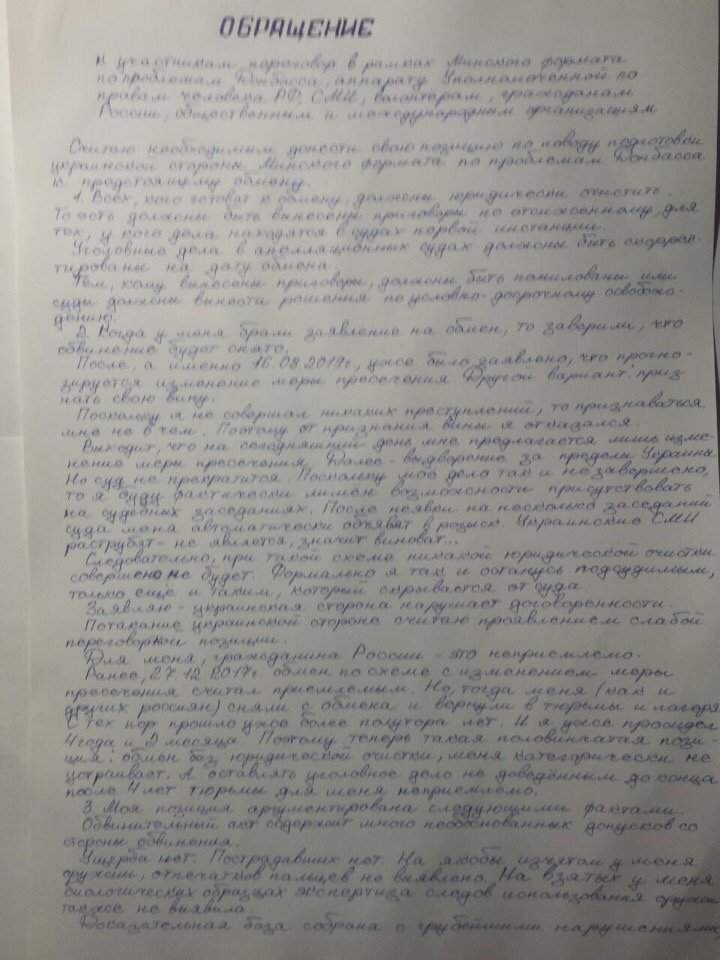 ОБРАЩЕНИЕ
к участникам переговор в рамках Минского формата
по проблемам Донбасса, аппарату Уполномоченной по
правам человека РФ, СМИ, волонтерам, гражданам
России, общественным и международным организациям
Считаю необходимым донести свою позицию по поводу подготовки
украинской стороны Минского формата по проблемам Донбасса
к предстоящему обмену.
1. Всех, кого готовят к обмену, должны юридически очистить.
То есть должны быть вынесены приговоры по отсиженному, для
тех, у кого дела находятся в судах первой инстанции.
Уголовные дела в апелляционных судах должны быть скоррек-
тированы на дату обмена.
Тем, кому вынесены приговоры, должны быть помилованы или
суды должны вынести решения по условно-досрочному освобож-
дению.
2. Когда у меня брали заявление на обмен, то заверили, что
обвинение будет снято.
После, а именно 16.08.2019г., уже было заявлено, что прогно-
зируется изменение меры пресечения. Другой вариант: приз-
нать свою вину.
Поскольку я не совершал никаких преступлений, то признаваться
мне не в чем. Поэтому от признания вины я отказался.
Выходит, что на сегодняшний день мне предлагается лишь изме-
нение меры пресечения. Далее - выдворение за пределы Украины.
Но суд не прекратится. Поскольку моё дело так и не завершено,
то я буду фактически лишен возможности присутствовать
на судебных заседаниях. После неявки на несколько заседаний
суда меня автоматически объявят в розыск. Украинские СМИ
раструбят - не является, значит виноват...
Следовательно, при такой схеме никакой юридической очистки
совершено не будет. Формально я так и останусь подсудимым,
только еще и таким, который скрывается от суда.
Заявляю - украинская сторона нарушает договоренности.
Потакание украинской стороне считаю проявлением слабой
переговорной позиции.
Для меня, гражданина России - это неприемлемо.
Ранее, 27.12.2017г. обмен по схеме с изменением меры
пресечения считал приемлемым. Но, тогда меня (как и
других россиян) сняли с обмена и вернули в тюрьмы и лагеря.
С тех пор прошло уже более полутора лет. И я уже просидел
4 года и 2 месяца. Поэтому теперь такая половинчатая пози-
ция: обмен без юридической очистки, меня категорически не
устраивает. А оставлять уголовное дело не доведённым до конца
после 4 лет тюрьмы для меня неприемлемо.
3. Моя позиция аргументирована следующими фактами.
Обвинительный акт содержит много необоснованных допусков со
стороны обвинения.
Ущерба нет. Пострадавших нет. На якобы изъятом у меня
оружии, отпечатков пальцев не выявлена. На взятых у меня
биологических образцах экспертиза следов использования оружия
также не выявила.
Доказательная база собрана с грубейшими нарушениями